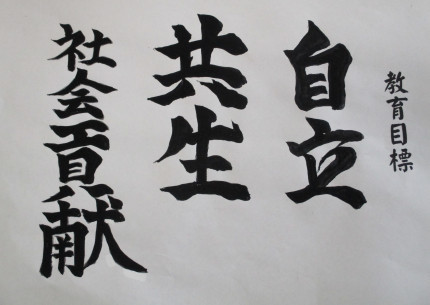 教育目標
自立
共生
社会貢献